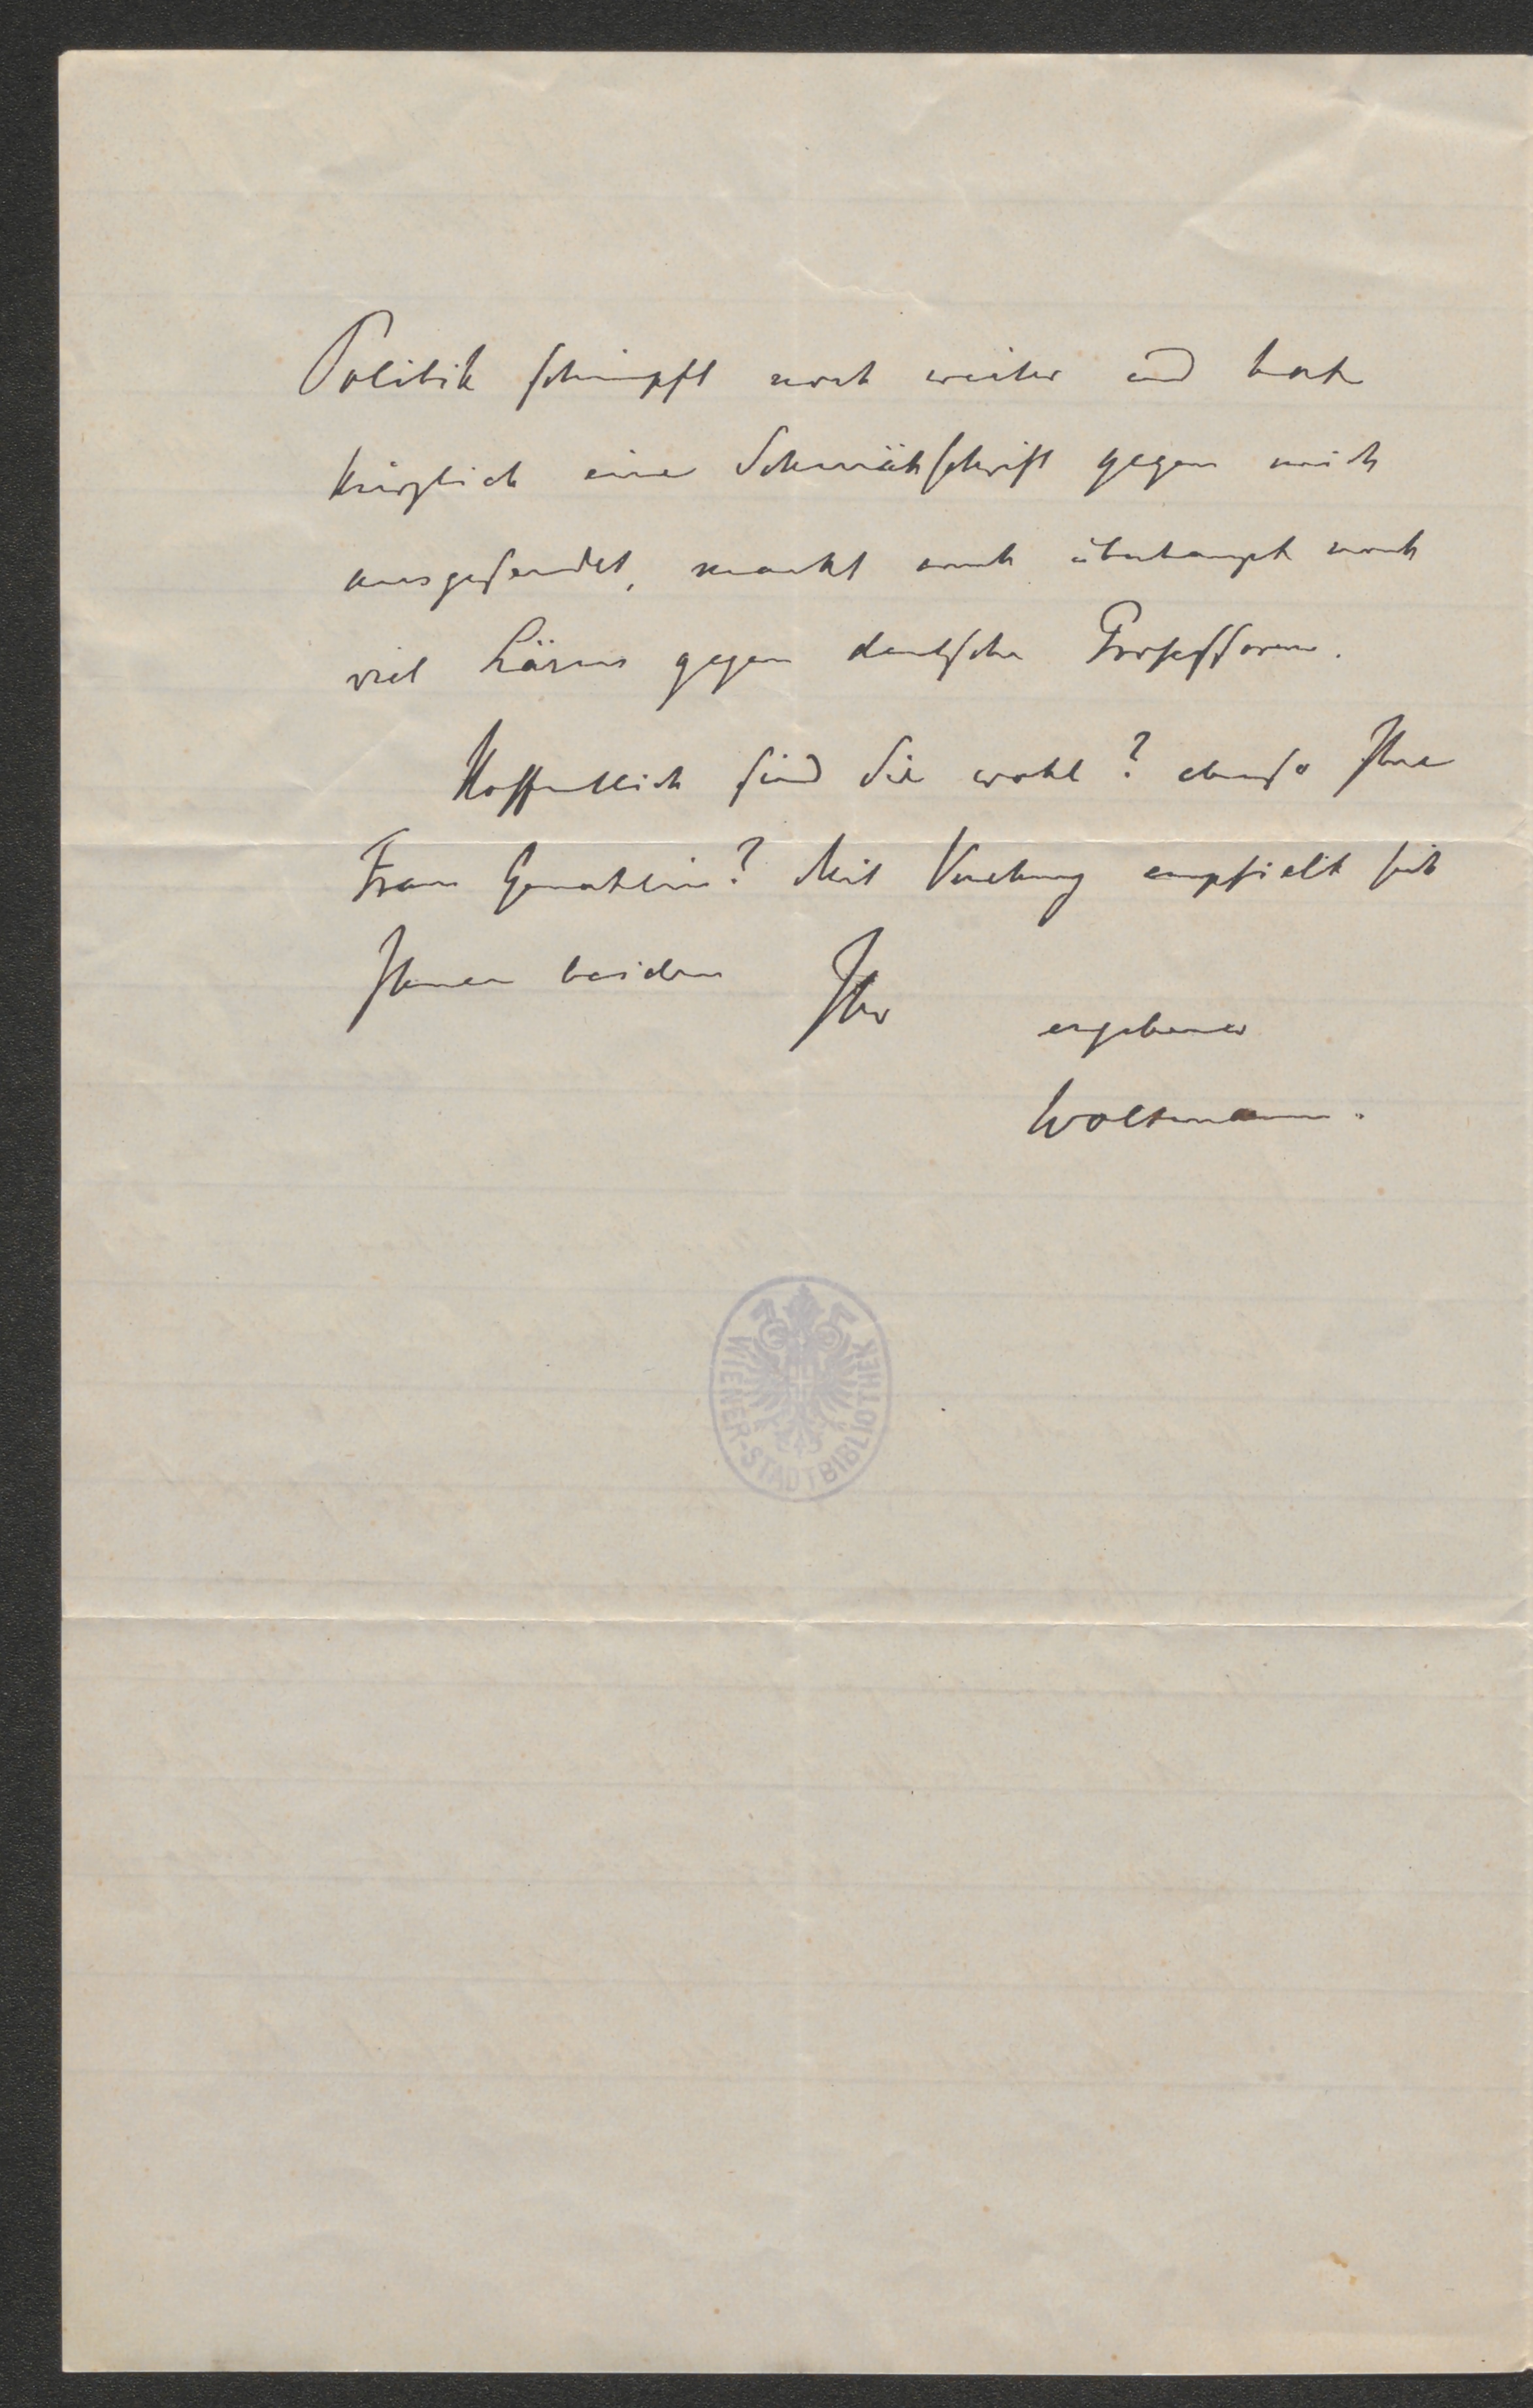 Politik schimpft noch weiter und hat
kürzlich eine Schmähschrift gegen mich
ausgesendet, macht auch überhaupt noch
viel Lärm gegen deutsche Professoren.
Hoffentlich sind Sie wohl? ebenso Ihre
Frau Gemahlin? Mit Verehrung empfielt sich
Ihnen beiden Ihr
ergebener
Woltmann.
WIENER-STADTBIBLIOTHEK